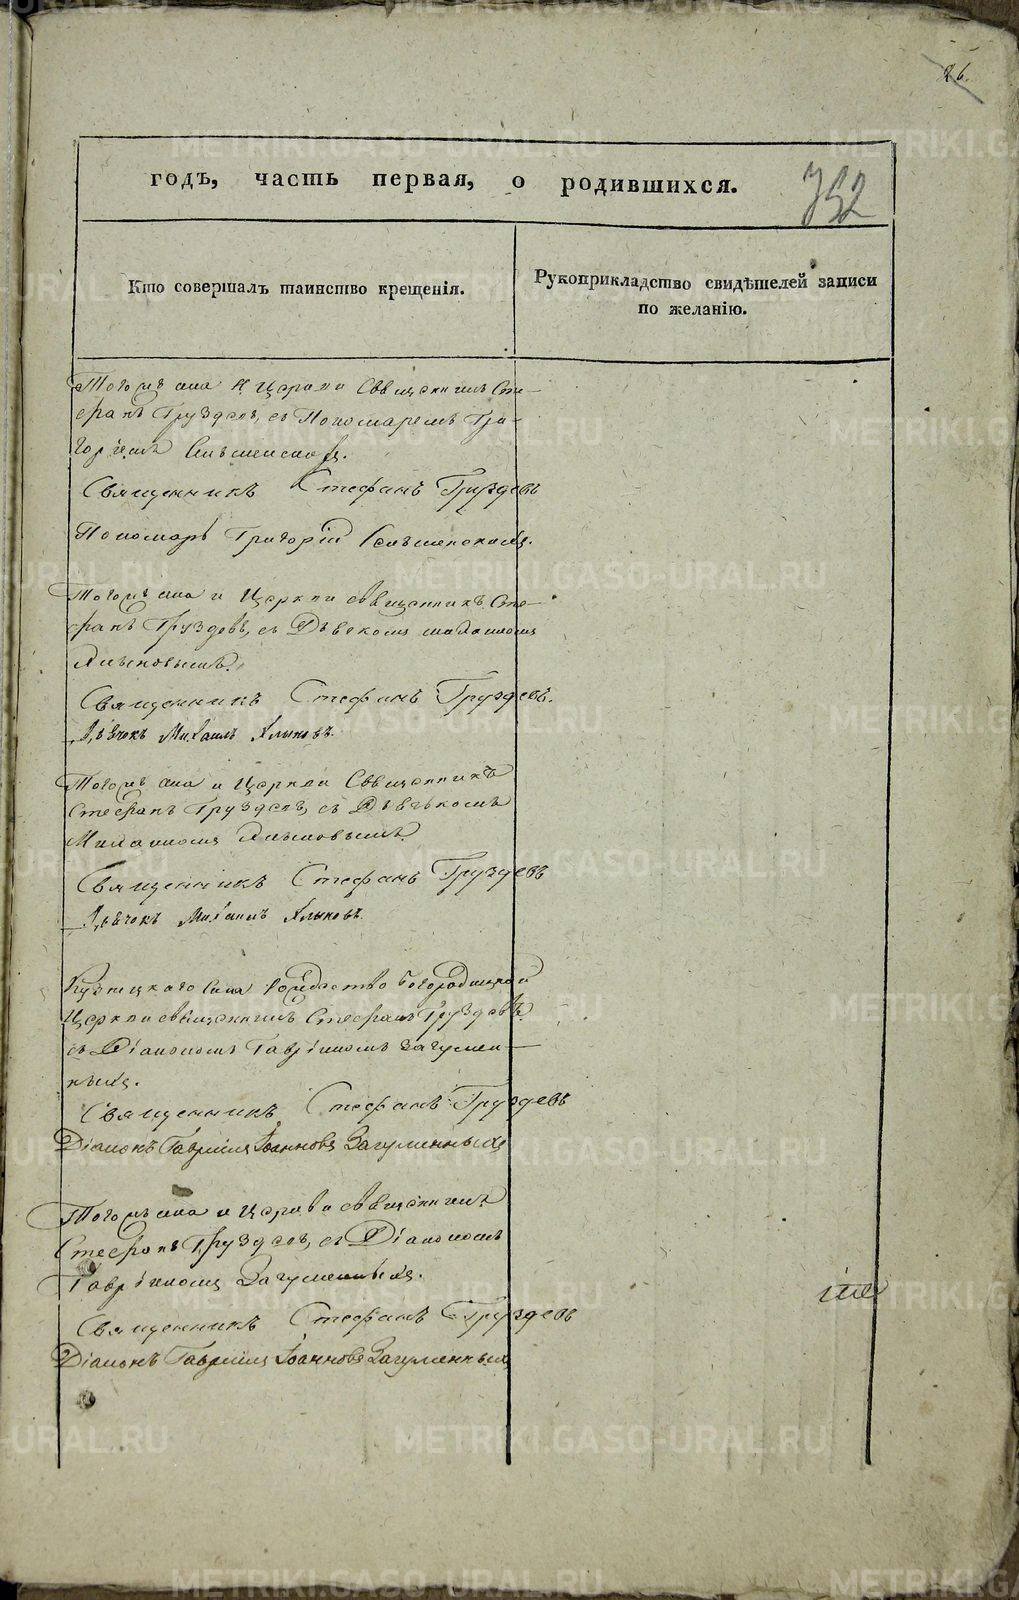 26.
годъ, часть первая, о родившихся.
752
Кто совершалъ таинство крещенія.
Рукоприкладство свидѣтелей записи
по желанію.
Тогожъ села и Церкви Священникъ Сте-
фанъ Груздевъ, съ Пономаремъ Гри-
горіемъ
Священникъ Стефанъ Груздевъ
Пономарь Григорій
Тогожъ села и Церкви священникъ Сте-
фанъ Груздевъ, съ Дьячкомъ Михаиломъ
Алыповымъ.
Священникъ Стефанъ Груздевъ.
Дьячокъ Михаилъ
Тогожъ села и Церкви Священникъ
Стефанъ Груздевъ, съ Дьячькомъ
Михаиломъ
Священникъ Стефанъ Груздевъ
Дьячокъ Михаилъ
села Рождество Богородицкой
Церкви священникъ Стефанъ Груздевъ
съ Діакономъ Гавріиломъ Загумен-
ныхъ.
Священникъ Стефанъ Груздевъ
Діаконъ Гавріилъ Іоанновъ Загуменныхъ
Тогожъ села и Церкви священникъ
Стефанъ Груздевъ, съ Діакономъ
Гавріиломъ Загуменныхъ.
Священникъ Стефанъ Груздевъ
Діаконъ Гавріилъ Іоанновъ Загуменныхъ
METRIKI.GASO-URAL.RU